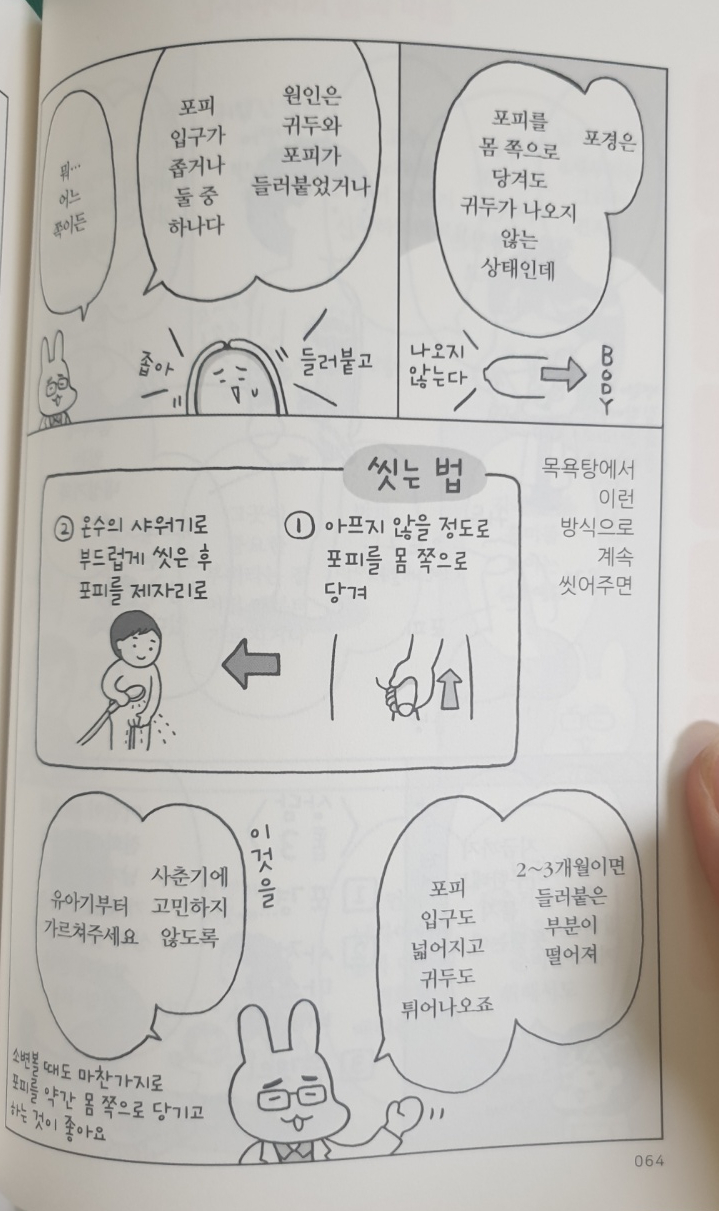 포경은
포피를
몸 쪽으로
당겨도
귀두가 나오지
않는
상태인데
나오지
않는다
BODY
원인은
귀두와
포피가
들러붙었거나
포피
입구가
좁거나
둘 중
하나다
들러붙고
좁아
뭐…
어느
쪽이든
목욕탕에서
이런
방식으로
계속
씻어주면
씻는 법
① 아프지 않을 정도로
포피를 몸 쪽으로
당겨
② 온수의 샤워기로
부드럽게 씻은 후
포피를 제자리로
2~3개월이면
들러붙은
부분이
떨어져
포피
입구도
넓어지고
귀두도
튀어나오죠
이것을
사춘기에
고민하지
않도록
유아기부터
가르쳐주세요
소변볼 때도 마찬가지로
포피를 약간 몸 쪽으로 당기고
하는 것이 좋아요
064